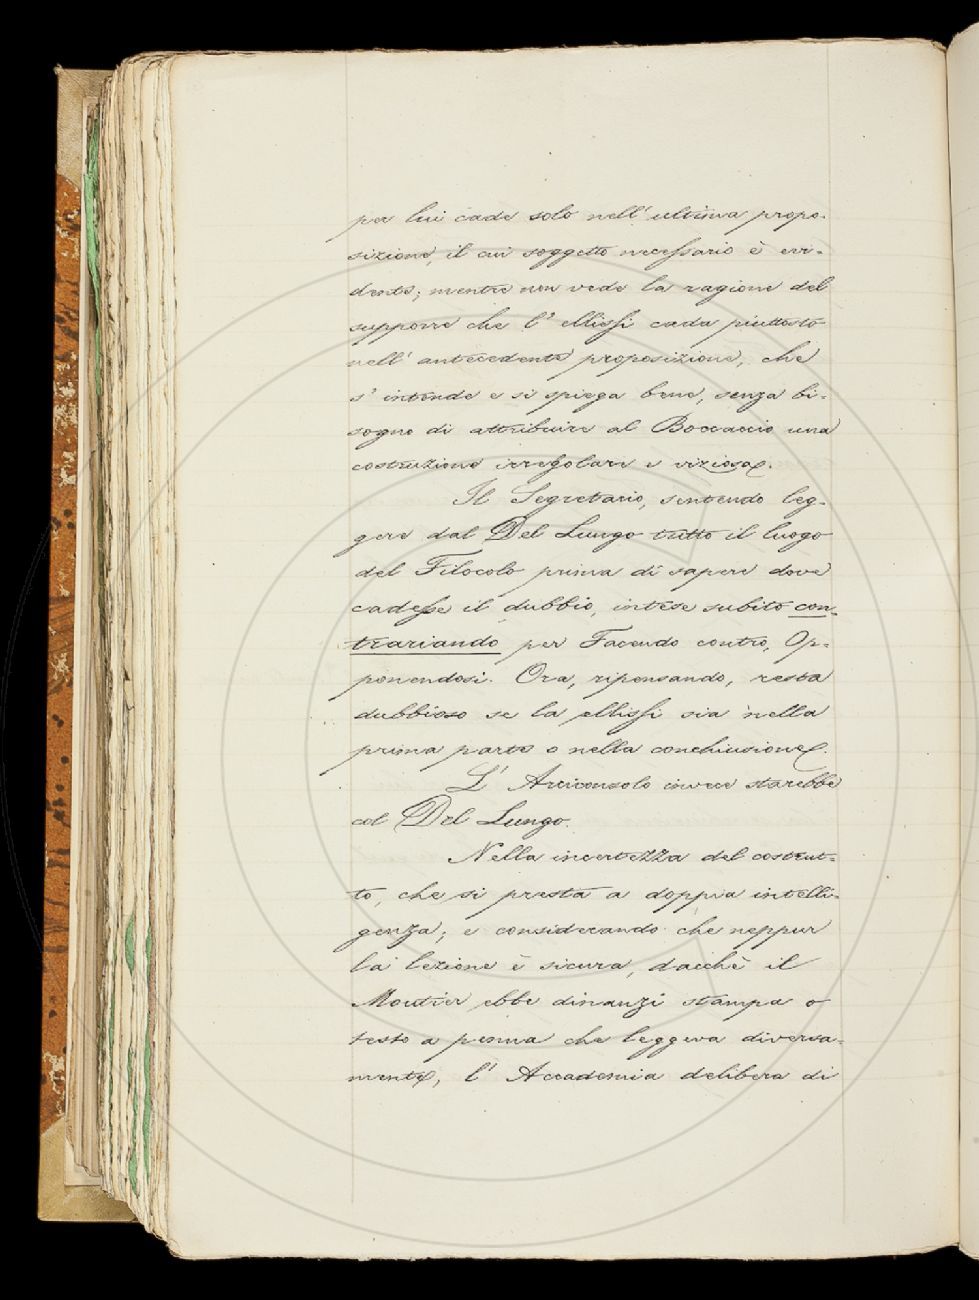 per lui cade solo nell' ultima propo-
sizione, il cui soggetto necessario è evi-
dente; mentre non vede la ragione del
supporre che l' ellissi cada piuttosto
nell' antecedente proposizione, che
s' intende e si spiega bene, senza bi-
sogno di attribuire al Boccaccio una
costruzione irregolare e viziosa.
Il Segretario, sentendo leg-
gere dal Del Lungo tutto il luogo
del Filocolo prima di sapere dove
cadesse il dubbio, intese subito con-
trariando per Facendo contro, Op-
ponendosi. Ora, ripensando, resta
dubbioso se la ellissi sia nella
prima parte o nella conchiusione.
L' Arciconsolo invece starebbe
col Del Lungo.
Nella incertezza del costrut-
to, che si presta a doppia intelli-
genza; e considerando che neppur
la lezione è sicura, dacchè il
Moutier ebbe dinanzi stampa o
testo a penna che leggeva diversa-
mente, l' Accademia delibera di